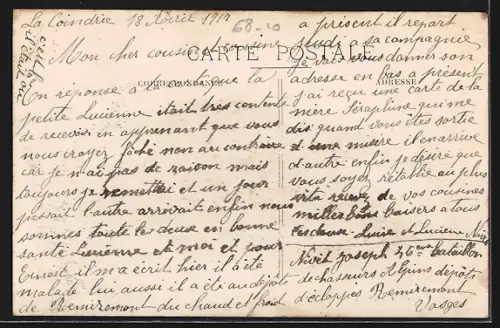 La Coindrie 18 Avril 1917
68-10
Mon cher cousin cousine
CARTE POSTALE
CORRESPONDANCE
En réponse a que ta
petite Lucienne était très contente
de recevoir in apprenant que vous
nous croyez fâché non au contraire
car je n'ai pas de raison mais
toujours je remettrai et un jour
passait l'autre arrivait enfin nous
sommes toute les deux en bonne
santé Lucienne et moi et pour
Ernest il m a écrit hier il a été
malade lui aussi il a été au dépôt
de Remiremont du chaud et froid
a présent il repart
jeudi a sa compagnie
je vais vous donner son
ADRESSE
adresse en bas a présent
j'ai reçu une carte de la
mère Séraphine qui me
dis quand vous êtes sortie
d une misère il en arrive
d'autre enfin je désire que
vous soyez rétablie au plus
vite recevez de vos cousines
mille bons baisers a tous
Lucie et Lucienne
Nivet joseph bataillon
de chasseurs alpins dépôts
d'éclopés Remiremont
Vosges